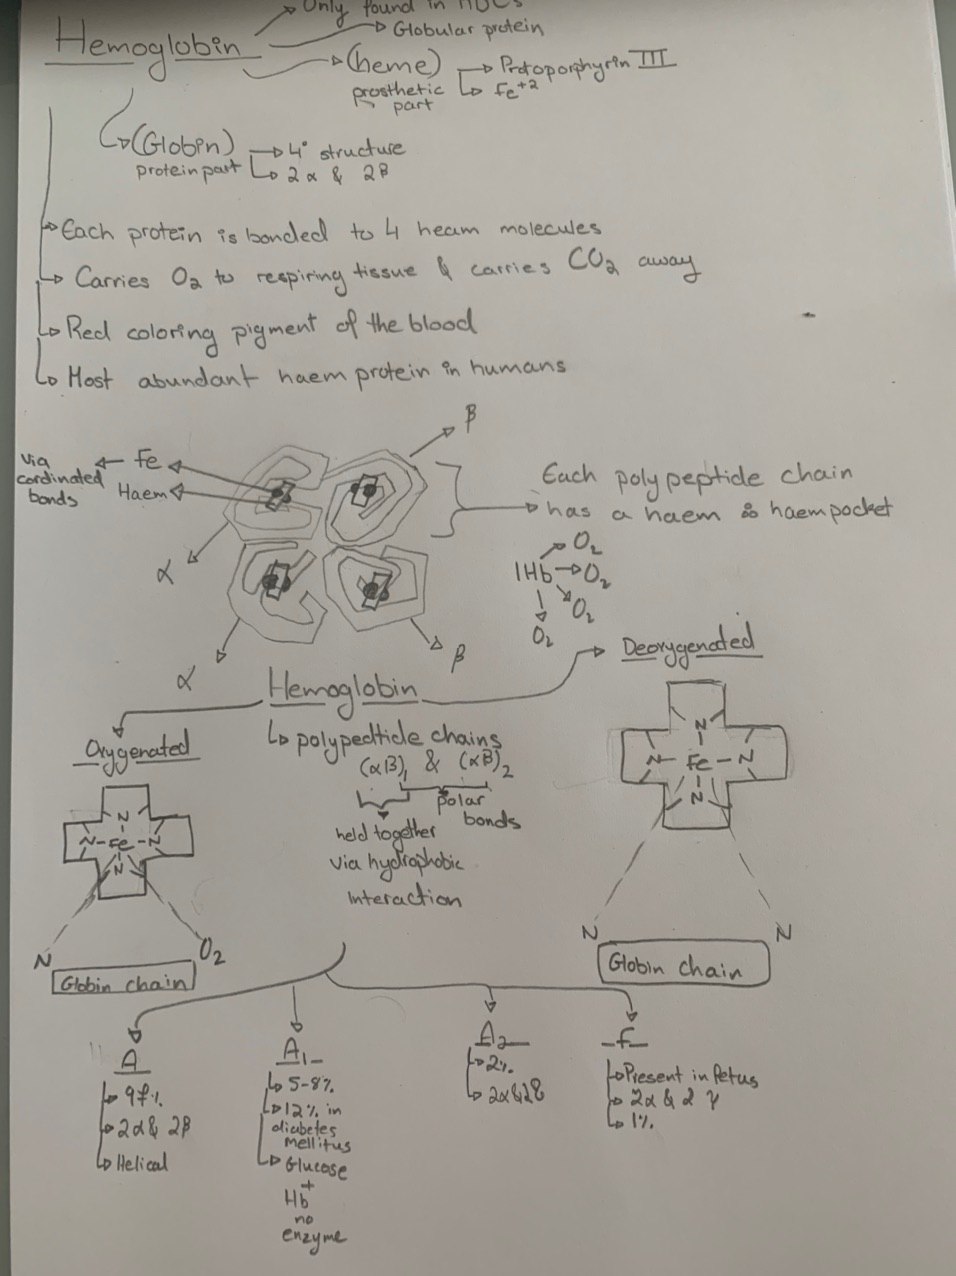 Only found in RBCs
Hemoglobin
Globular protein
(heme)
prosthetic
part
Protoporphyrin III
Fe+2
(Globin)
protein part
4° structure
2α & 2β
Each protein is bonded to 4 heam molecules
Carries O2 to respiring tissue & carries CO2 away
Red coloring pigment of the blood
Most abundant haem protein in humans
β
via
cordinated
bonds
Fe
Haem
Each polypeptide chain
has a haem & haempocket
α
1Hb
O2
O2
O2
O2
β
α
Deoxygenated
Hemoglobin
Oxygenated
polypedtide chains
(αβ)1 & (αβ)2
polar
bonds
held together
via hydrophobic
interaction
N
N Fe N
N
N
N-Fe-N
N
N
O2
Globin chain
N
N
Globin chain
A
97%
2α & 2β
Helical
A1
5-8%
12% in
diabetes
mellitus
Glucose
+
Hb
no
enzyme
A2
2%
2α&2δ
F
Present in fetus
2α & 2γ
1%